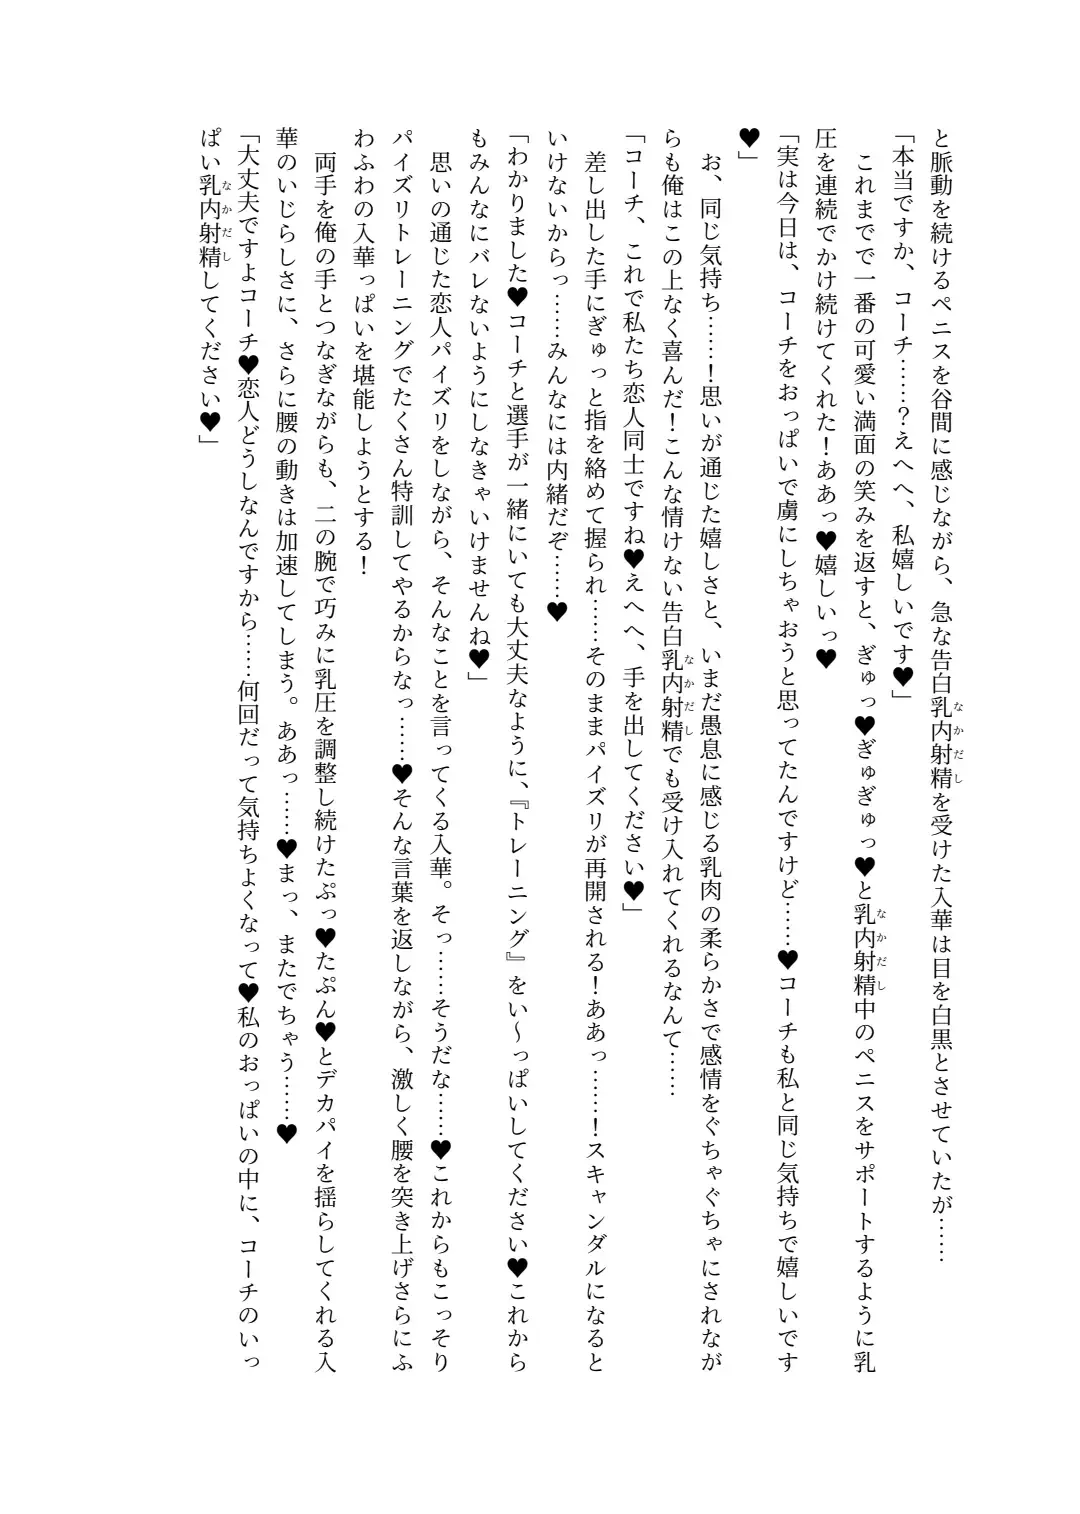 と脈動を続けるペニスを谷間に感じながら、急な告白乳内射精を受けた入華は目を白黒とさせていたが……
「本当ですか、コーチ……？えへへ、私嬉しいです♥」
　これまでで一番の可愛い満面の笑みを返すと、ぎゅっ♥ぎゅぎゅっ♥と乳内射精中のペニスをサポートするように乳
圧を連続でかけ続けてくれた！ああっ♥嬉しいっ♥
「実は今日は、コーチをおっぱいで虜にしちゃおうと思ってたんですけど……♥コーチも私と同じ気持ちで嬉しいです
♥」
　お、同じ気持ち……！思いが通じた嬉しさと、いまだ愚息に感じる乳肉の柔らかさで感情をぐちゃぐちゃにされなが
らも俺はこの上なく喜んだ！こんな情けない告白乳内射精でも受け入れてくれるなんて……
「コーチ、これで私たち恋人同士ですね♥えへへ、手を出してください♥」
　差し出した手にぎゅっと指を絡めて握られ……そのままパイズリが再開される！ああっ……！スキャンダルになると
いけないからっ……みんなには内緒だぞ……♥
「わかりました♥コーチと選手が一緒にいても大丈夫なように、『トレーニング』をい～っぱいしてください♥これから
もみんなにバレないようにしなきゃいけませんね♥」
　思いの通じた恋人パイズリをしながら、そんなことを言ってくる入華。そっ……そうだな……♥これからもこっそり
パイズリトレーニングでたくさん特訓してやるからなっ……♥そんな言葉を返しながら、激しく腰を突き上げさらにふ
わふわの入華っぱいを堪能しようとする！
　両手を俺の手とつなぎながらも、二の腕で巧みに乳圧を調整し続けたぷっ♥たぷん♥とデカパイを揺らしてくれる入
華のいじらしさに、さらに腰の動きは加速してしまう。ああっ……♥まっ、またでちゃう……♥
「大丈夫ですよコーチ♥恋人どうしなんですから……何回だって気持ちよくなって♥私のおっぱいの中に、コーチのいっ
ぱい乳内射精してください♥」